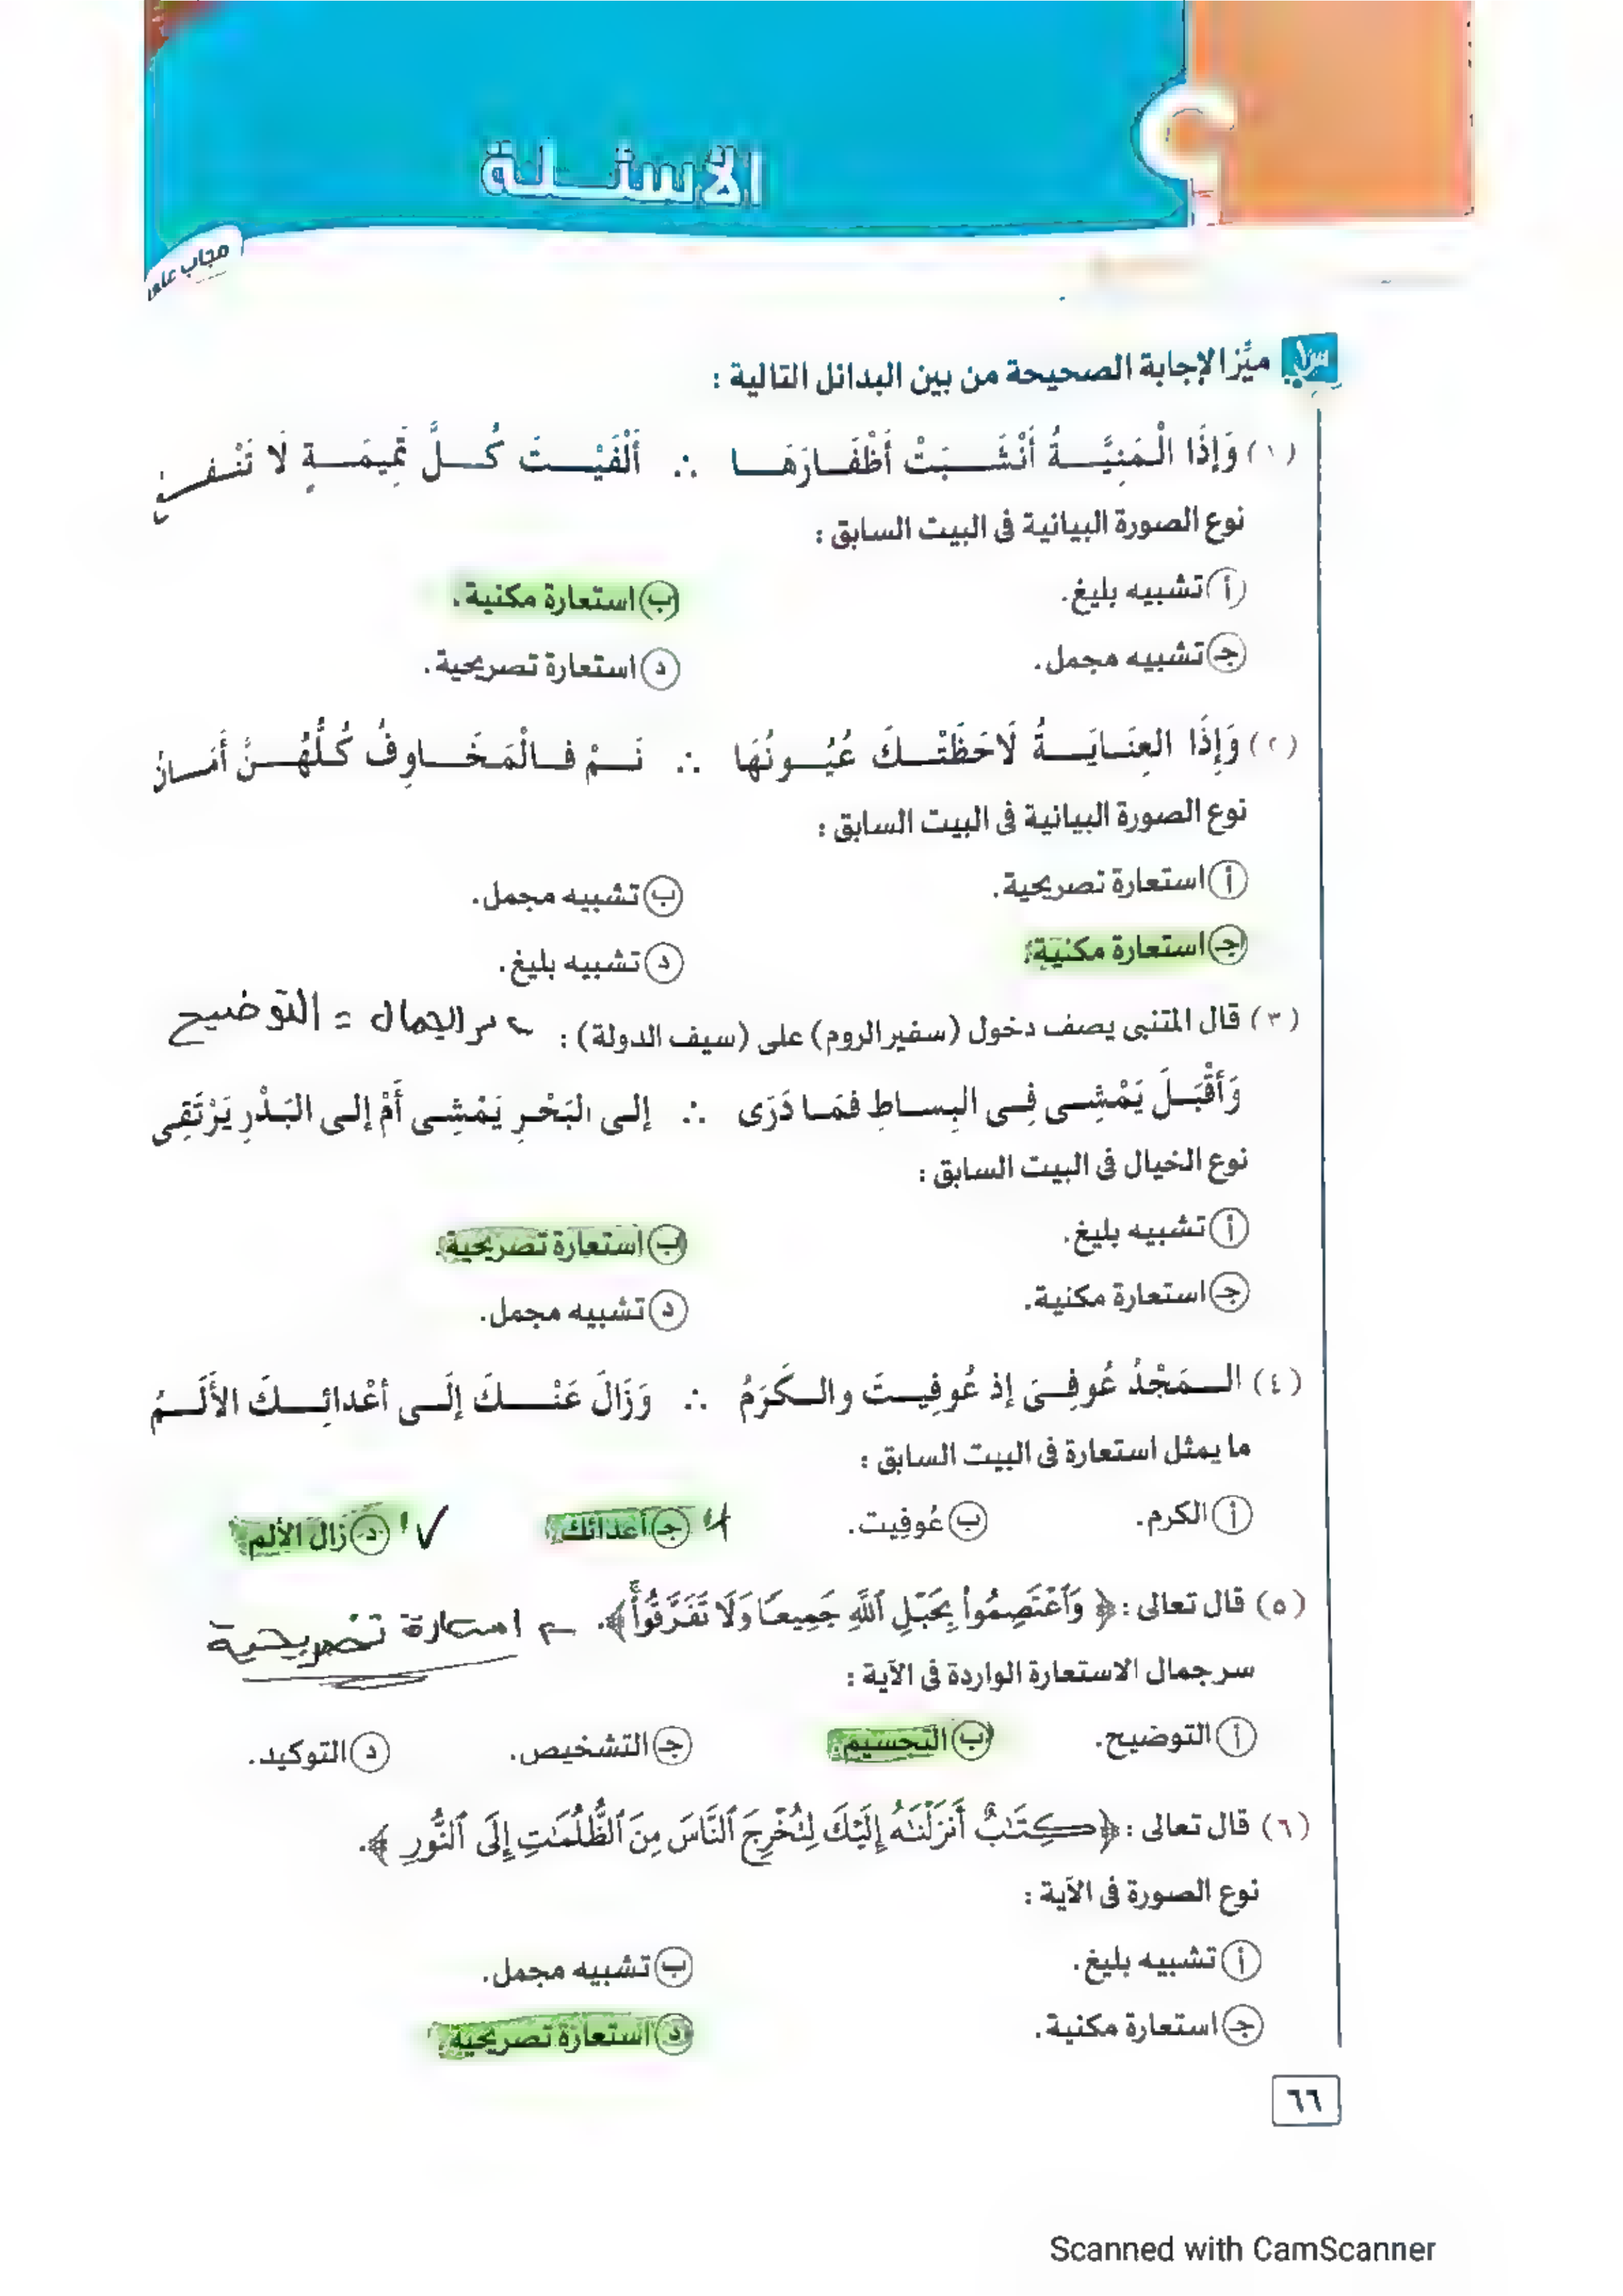 الأسئلة
مجاب على
س١ ميِّز الإجابة الصحيحة من بين البدائل التالية :
(١) وَإِذَا الْمَنِيَّـةُ أَنْشَـبَتْ أَظْفَـارَهَـا ∴ أَلْفَيْـتَ كُـلَّ تَمِيمَـةٍ لَا تَنْـفـع
نوع الصورة البيانية فى البيت السابق :
أ تشبيه بليغ. ب استعارة مكنية.
جـ تشبيه مجمل. د استعارة تصريحية.
(٢) وَإِذَا العِنَـايَـةُ لَاحَظَتْـكَ عُيُـونُهَا ∴ نَـمْ فـالْمَخَـاوِفُ كُلُّهُـنَّ أَمَـانُ
نوع الصورة البيانية فى البيت السابق :
أ استعارة تصريحية. ب تشبيه مجمل.
جـ استعارة مكنية. د تشبيه بليغ.
(٣) قال المتنبى يصف دخول (سفير الروم) على (سيف الدولة) : سر الجمال = التوضيح
وَأَقْبَـلَ يَمْشِـى فِـى البِسـاطِ فمَـا دَرَى ∴ إلـى البَحْـرِ يَمْشِـى أَمْ إلى البَـدْرِ يَرْتَقِى
نوع الخيال فى البيت السابق :
أ تشبيه بليغ. ب استعارة تصريحية.
جـ استعارة مكنية. د تشبيه مجمل.
(٤) الـمَجْدُ عُوفِـىَ إذ عُوفِيـتَ والـكَرَمُ ∴ وَزَالَ عَنْـكَ إلَـى أعْدائِـكَ الأَلَـمُ
ما يمثل استعارة فى البيت السابق :
أ الكرم. ب عُوفِيت. جـ أعدائك. د زال الألم.
(٥) قال تعالى : ﴿ وَٱعْتَصِمُوا۟ بِحَبْلِ ٱللَّهِ جَمِيعًا وَلَا تَفَرَّقُوا۟ ﴾. استعارة تصريحية
سر جمال الاستعارة الواردة فى الآية :
أ التوضيح. ب التجسيم. جـ التشخيص. د التوكيد.
(٦) قال تعالى : ﴿ كِتَـٰبٌ أَنزَلْنَـٰهُ إِلَيْكَ لِتُخْرِجَ ٱلنَّاسَ مِنَ ٱلظُّلُمَـٰتِ إِلَى ٱلنُّورِ ﴾.
نوع الصورة فى الآية :
أ تشبيه بليغ. ب تشبيه مجمل.
جـ استعارة مكنية. د استعارة تصريحية.
٦٦
Scanned with CamScanner